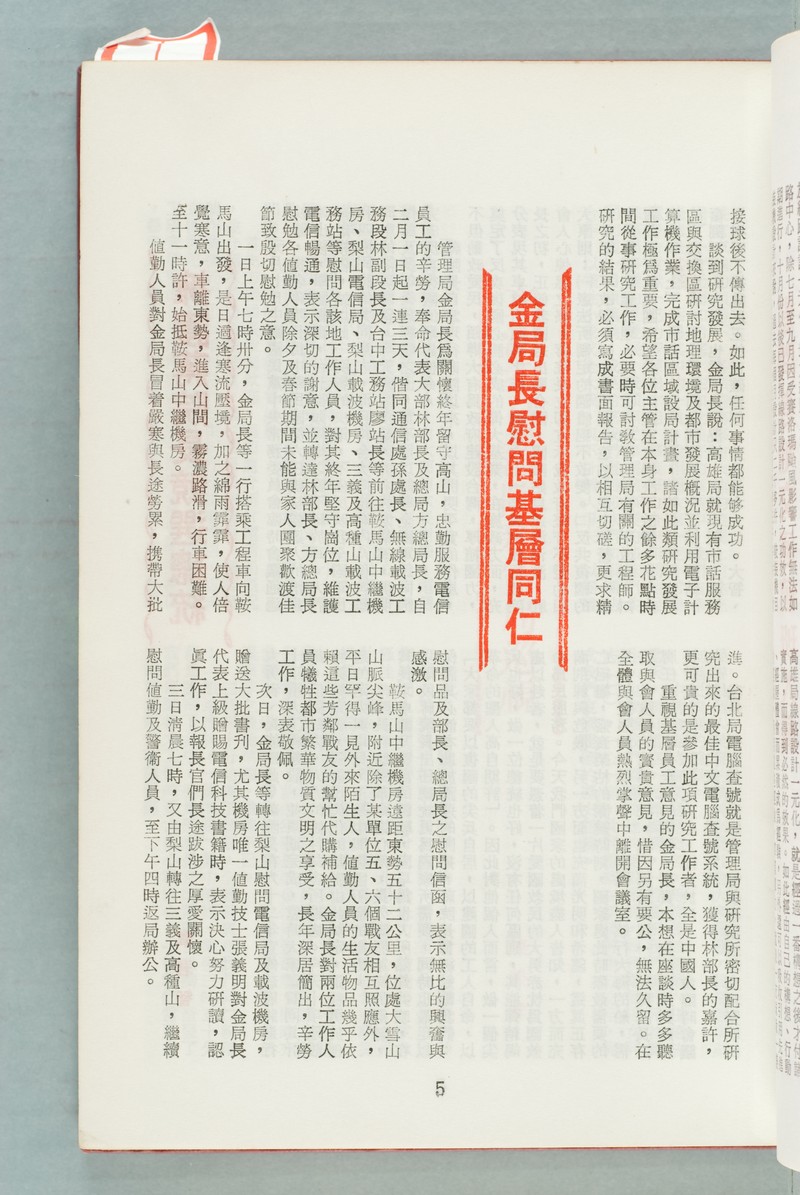 接球後不傳出去。如此，任何事情都能够成功。
談到研究發展，金局長說：高雄局就現有市話服務
區與交換區研討地理環境及都市發展概況並利用電子計
算機作業，完成市話區域設局計畫，諸如此類研究發展
工作極爲重要，希望各位主管在本身工作之餘多花點時
間從事研究工作，必要時可討敎管理局有關的工程師。
研究的結果，必須寫成書面報告，以相互切磋，更求精
進。台北局電腦查號就是管理局與研究所密切配合所研
究出來的最佳中文電腦查號系統，獲得林部長的嘉許，
更可貴的是參加此項研究工作者，全是中國人。
重視基層員工意見的金局長，本想在座談時多多聽
取與會人員的寳貴意見，惜因另有要公，無法久留。在
全體與會人員熱烈掌聲中離開會議室。
金局長慰問基層同仁
管理局金局長爲關懷終年留守高山，忠勤服務電信
員工的辛勞，奉命代表大部林部長及總局方總局長，自
二月一日起一連三天，偕同通信處孫處長、無線載波工
務段林副段長及台中工務站廖站長等前往鞍馬山中繼機
房、梨山電信局、梨山載波機房、三義及高種山載波工
務站等慰問各該地工作人員，對其終年堅守崗位，維護
電信暢通，表示深切的謝意，並轉達林部長、方總局長
慰勉各値勤人員除夕及春節期間未能與家人團聚歡渡佳
節致殷切慰勉之意。
一日上午七時卅分，金局長等一行搭乘工程車向鞍
馬山出發，是日適逢寒流壓境，加之綿雨霏霏，使人倍
覺寒意，車離東勢，進入山間，霧濃路滑，行車困難。
至十一時許，始抵鞍馬山中繼機房。
値勤人員對金局長冒着嚴寒與長途勞累，携帶大批
慰問品及部長、總局長之慰問信函，表示無比的興奮與
感激。
鞍馬山中繼機房遠距東勢五十二公里，位處大雪山
山脈尖峰，附近除了某單位五、六個戰友相互照應外，
平日罕得一見外來陌生人，値勤人員的生活物品幾乎依
賴這些芳鄰戰友的幫忙代購補給。金局長對兩位工作人
員犧牲都市繁華物質文明之享受，長年深居簡出，辛勞
工作，深表敬佩。
次日，金局長等轉往梨山慰問電信局及載波機房，
贈送大批書刋，尤其機房唯一値勤技士張義明對金局長
代表上級贈賜電信科技書籍時，表示決心努力研讀，認
眞工作，以報長官們長途跋涉之厚愛關懷。
三日淸晨七時，又由梨山轉往三義及高種山，繼續
慰問値勤及警衛人員，至下午四時返局辦公。
5